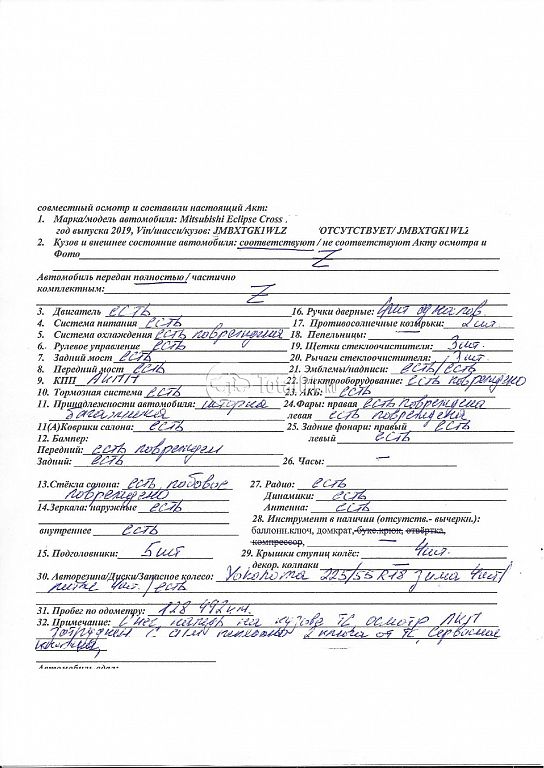 совместный осмотр и составили настоящий Акт:
1. Марка/модель автомобиля: Mitsubishi Eclipse Cross ,
год выпуска 2019, Vin/шасси/кузов: JMBXTGK1WLZ /ОТСУТСТВУЕТ/ JMBXTGK1WLZ
2. Кузов и внешнее состояние автомобиля: соответствуют / не соответствуют Акту осмотра и
Фото Z
Автомобиль передан полностью / частично
комплектным: Z
3. Двигатель есть
4. Система питания есть
5. Система охлаждения есть повреждения
6. Рулевое управление есть
7. Задний мост есть
8. Передний мост есть
9. КПП АКПП
10. Тормозная система есть
11. Принадлежности автомобиля: шторка
багажника
11(А)Коврики салона: есть
12. Бампер:
Передний: есть поврежден
Задний: есть
13.Стёкла салона: есть лобовое
повреждено
14.Зеркала: наружные есть
внутреннее есть
15. Подголовники: 5 шт
16. Ручки дверные: 4шт одна пов.
17. Противосолнечные козырьки: 2 шт.
18. Пепельницы: —
19. Щетки стеклоочистителя: 3 шт.
20. Рычаги стеклоочистителя: 3 шт.
21. Эмблемы/надписи: есть/есть
22. Электрооборудование: есть повреждено
23. АКБ: есть
24.Фары: правая есть повреждена
левая есть повреждена
25. Задние фонари: правый есть
левый есть
26. Часы: —
27. Радио: есть
Динамики: есть
Антенна: есть
28. Инструмент в наличии (отсутств.- вычеркн.):
баллонн.ключ, домкрат, букс.крюк, отвёртка,
компрессор, —
29. Крышки ступиц колёс: 4шт.
декор. колпаки —
30. Авторезина/Диски/Запасное колесо: Yokohama 225/55 R18 зима 4шт/
литые 4шт./есть
31. Пробег по одометру: 128 492 км.
32. Примечание: Снег, на кузове ТС осмотр ЛКП
затруднен 2 ключа от ТС, Сервисная
книжка,
Автомобиль сдал: